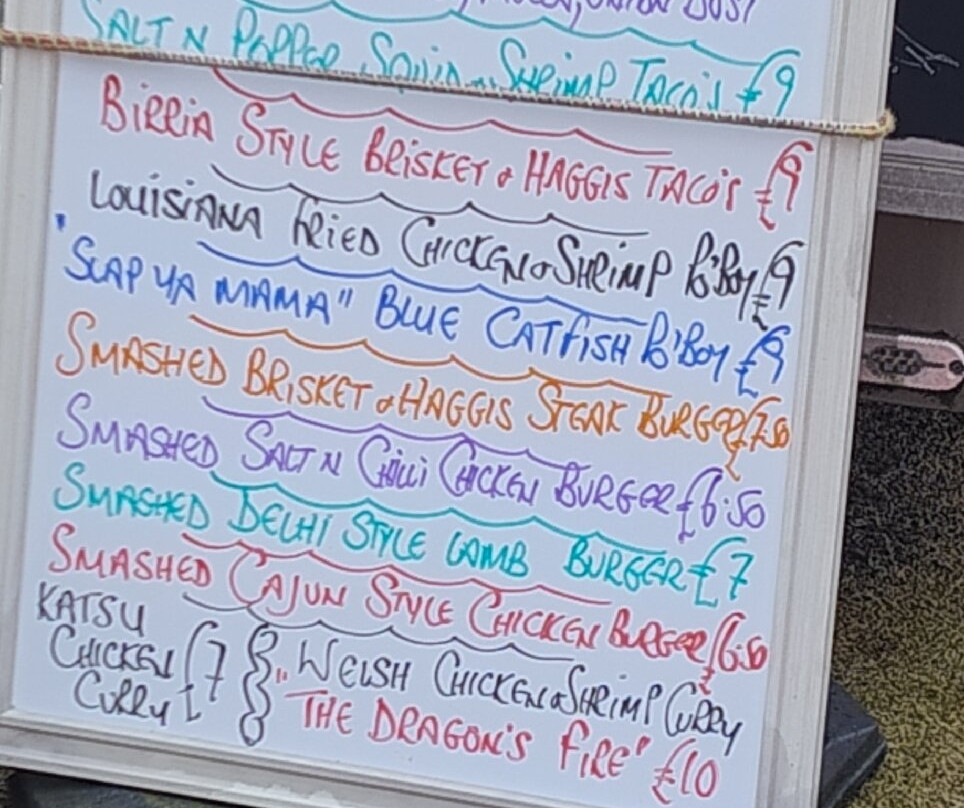 ONION DUST
SALT N PEPPER SQUID & SHRIMP TACO'S £9
BIRRIA STYLE BRISKET & HAGGIS TACO'S £9
LOUISIANA FRIED CHICKEN & SHRIMP PO'BOY £9
"SLAP YA MAMA" BLUE CATFISH PO'BOY £9
SMASHED BRISKET & HAGGIS STEAK BURGER £7.50
SMASHED SALT N CHILLI CHICKEN BURGER £6.50
SMASHED DELHI STYLE LAMB BURGER £7
SMASHED CAJUN STYLE CHICKEN BURGER £6.50
KATSU
CHICKEN £7
CURRY
"WELSH CHICKEN & SHRIMP CURRY
THE DRAGON'S FIRE" £10